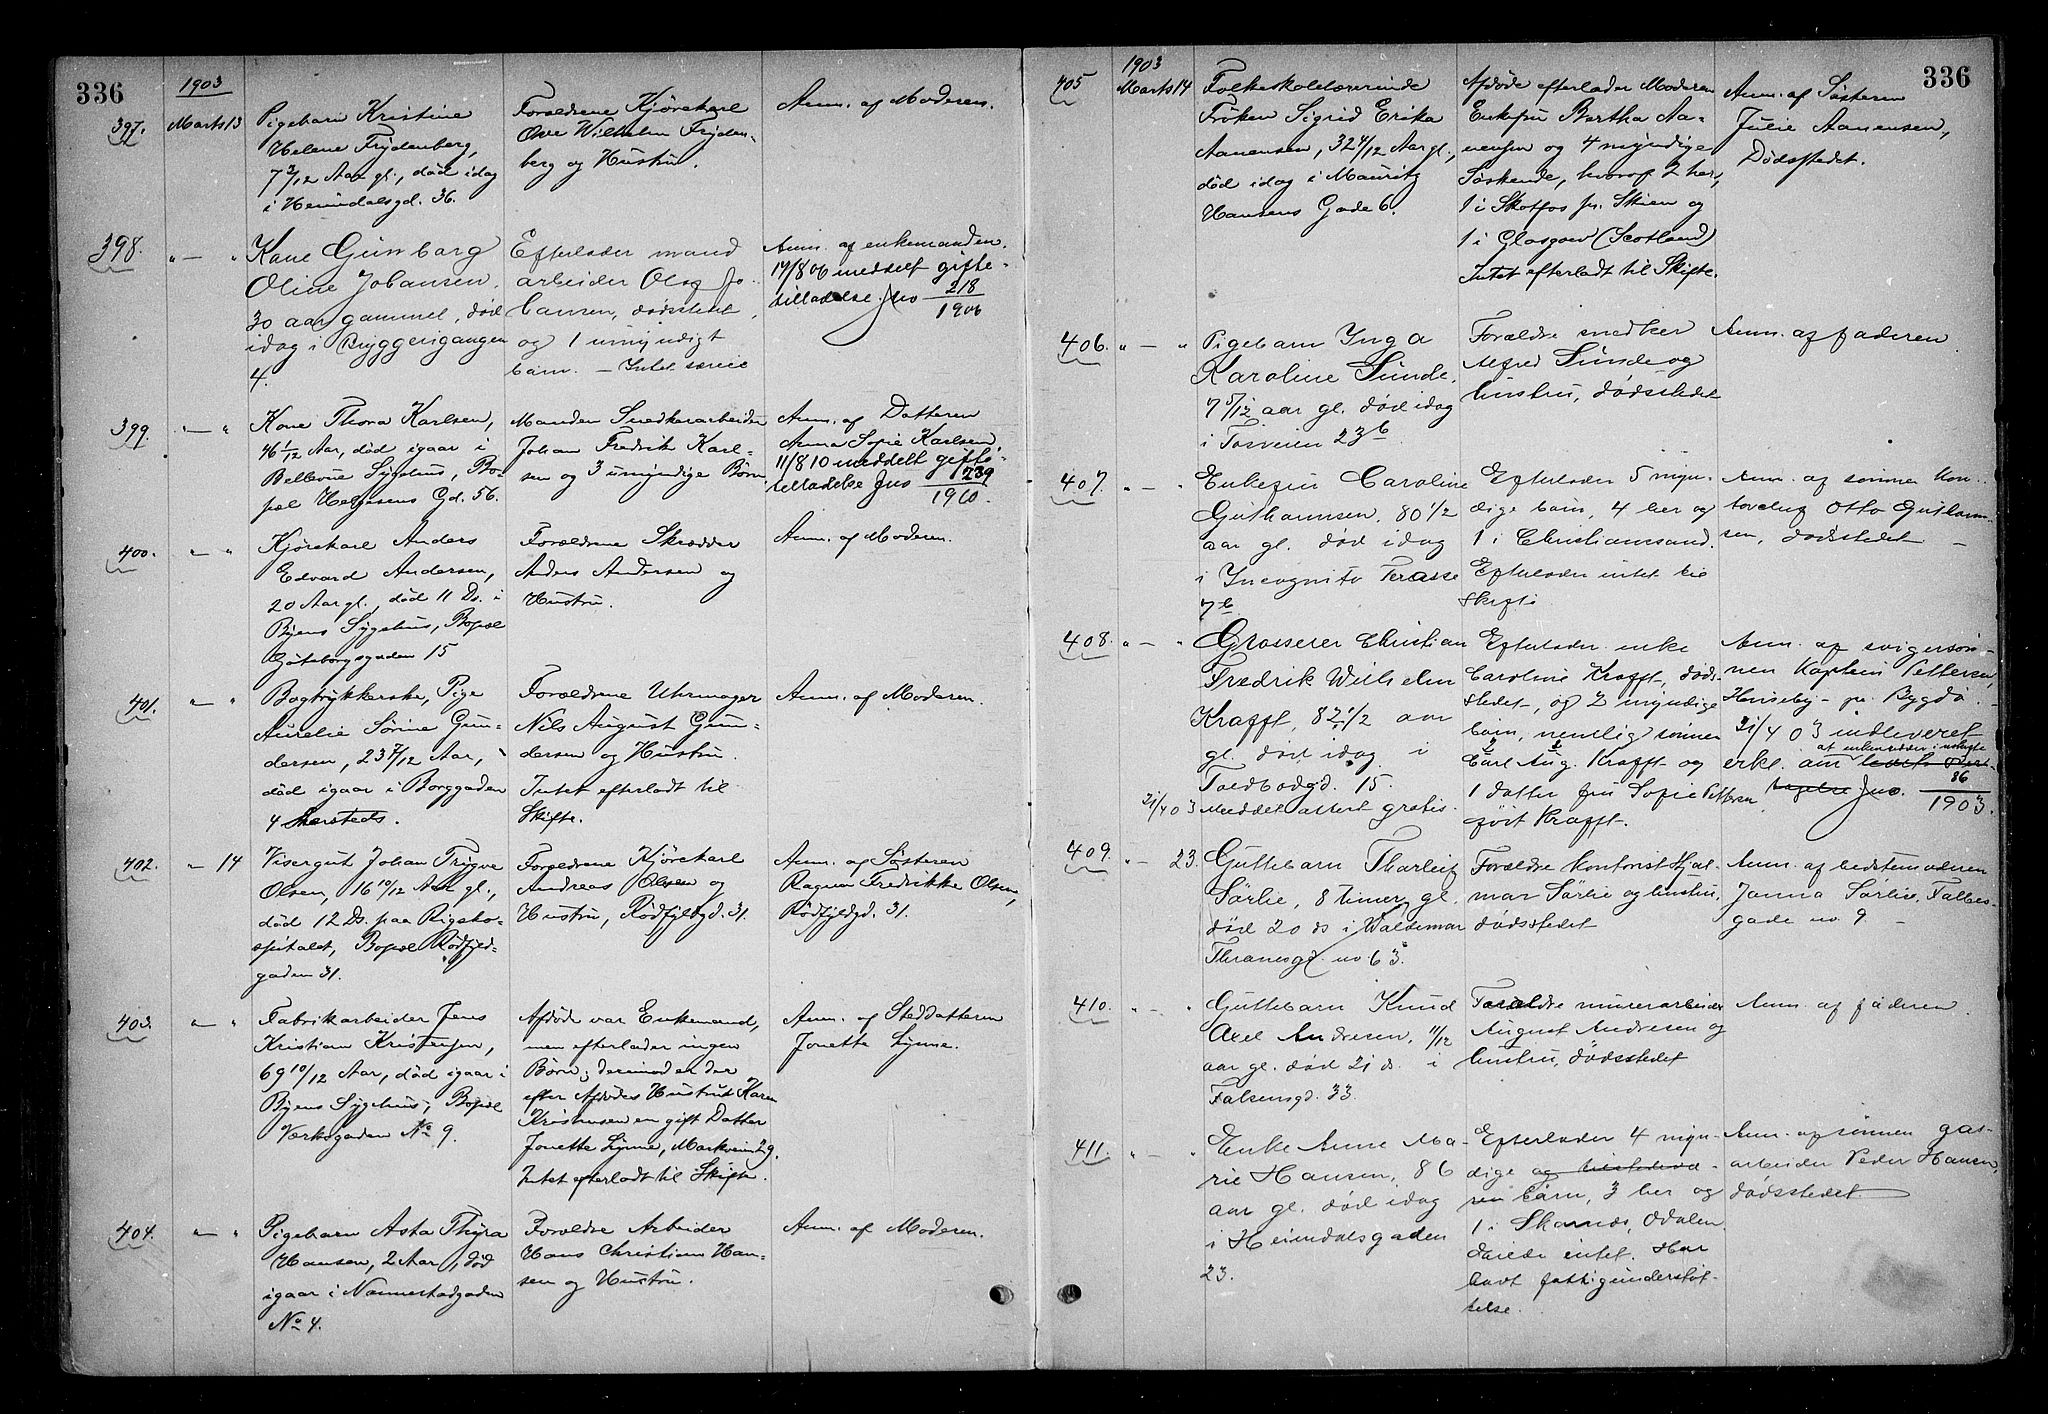 336
1903
397.
Marts 13
Pigebarn Kristine
Helene Frydenberg,
7 2/12 Aar gl., død idag
i Heimdalsgd. 36.
Forældrene Kjørekarl
Ove Wilhelm Fryden-
berg og Hustru.
Anm. af Moderen.
398.
" — "
Kone Gunborg
Oline Johansen,
30 aar gammel, død
idag i Bryggerigangen
4.
Efterlader mand
arbeider Olaf Jo-
hansen, dødsstedet,
og 1 umyndigt
barn. — Intet særeie
Anm. af enkemanden.
14/8 06 meddelt gifte-
tilladelse Jno 218
1906
399.
" — "
Kone Thora Karlsen,
46 1/12 Aar, død igaar i
Bellevue Sygehus, Bo-
pæl Helgesens Gd. 56.
Manden Snedkerarbeider
Johan Fredrik Karl-
sen og 3 umyndige Børn
Anm. af Datteren
Anna Sofie Karlsen.
11/8 10 meddelt gifte-
tilladelse Jno 239
1910.
400.
" — "
Kjørekarl Anders
Edvard Andersen,
20 Aar gl., død 11 Ds. i
Byens Sygehus, Bopæl
Göteborggaden 15
Forældrene Skrædder
Anders Andersen og
Hustru.
Anm. af Moderen.
401.
" — "
Bogtrykkerske, Pige
Aurelie Sørine Gun-
dersen, 23 7/12 Aar,
død igaar i Borggaden
4
Forældrene Uhrmager
Nils August Gun-
dersen og Hustru.
Intet efterladt til
Skifte.
Anm. af Moderen.
402.
" — 14
Visergut Johan Trygve
Olsen, 16 10/12 Aar gl.,
død 12 Ds. paa Rigsho-
spitalet, Bopæl Rødfyld-
gaden 31.
Forældrene Kjørekarl
Andreas Olsen og
Hustru, Rødfyldgd. 31.
Anm. af Søsteren
Ragna Fredrikke Olsen,
Rødfyldgd. 31.
403.
" — "
Fabrikarbeider Jens
Kristian Kristensen,
69 10/12 Aar, død igaar i
Byens Sygehus, Bopæl
Værksgaden No 9.
Afdøde var Enkemand,
men efterlader ingen
Børn; derimod er der
efter Afdødes Hustru Karen
Kristensen en gift Datter
Jonette Lynne, Markveien 29.
Intet efterladt til Skifte.
Anm. af Steddatteren
Jonette Lynne.
404.
" — "
Pigebarn Asta Thyra
Hansen, 2 Aar, død
igaar i Nannestadgaden
No 4.
Forældre Arbeider
Hans Christian Han-
sen og Hustru.
Anm. af Moderen.
336
1903
405
Marts 14
Folkeskolelærerinde
Frøken Sigrid Erika
Aanensen, 32 4/12 Aar gl.,
død idag i Mauritz
Hansens Gade 6.
Afdøde efterlader Moderen
Enkefru Bertha Aa-
nensen og 4 myndige
Søskende, hvoraf 2 her,
1 i Skotfos pr. Skien og
1 i Glasgow (Scotland)
Intet efterladt til Skifte.
Anm. af Søsteren
Julie Aanensen,
Dødsstedet.
406.
" — "
Pigebarn Inga
Karoline Sunde,
7 5/12 aar gl. død idag
i Tøsveien 23b
Forældre snedker
Alfred Sunde og
hustru, dødsstedet
Anm. af faderen
407.
" — "
Enkefru Caroline
Guthormsen, 80 1/2
aar gl. død idag
i Incognito Terasse
7b
Efterlader 5 myn-
dige barn, 4 her og
1 i Christiansand.
Efterlader intet til
Skifte
Anm. af sønnen kon-
torchef Otto Guthorm-
sen, dødsstedet —
408.
" — "
Grosserer Christian
Fredrik Wilhelm
Krafft, 82 1/2 aar
gl. død idag i
Toldbodgd. 15.
21/4 03 Meddelt attest gratis.
Efterlader enke
Caroline Krafft, døds-
stedet, og 2 myndige
barn, nemlig sønnen
Carl Aug. Krafft og
1 datter fru Sofie Pettersen
født Krafft.
Anm. af svigersøn-
nen Kaptein Pettersen,
Huseby pr. Bygdø.
21/4 03 indleveret
at enken sidder i uskiftet
erkl. om
Jno. 86
1903.
409.
" — 23.
Guttebarn Tharleif
Sørlie, 8 timer gl.
død 20 ds i Waldemar
Thranesgd. no 63.
Forældre kontorist Hjal-
mar Sørlie og hustru,
dødsstedet
Anm. af bedstemoderen
Janna Sørlie, Falbes-
gade no 9 —
410.
" — "
Guttebarn Knud
Axel Andresen, 11/12
aar gl. død 21 ds. i
Falsensgd. 33.
Forældre murerarbeider
August Andresen og
hustru, dødsstedet
Anm. af faderen.
411.
" — "
Enke Anne Ma-
rie Hansen, 86
aar gl. død idag
i Heimdalsgaden
23.
Efterlader 4 myn-
dige og
barn, 3 her og
1 i Skarnæs, Odalen
Eiede intet. Har
havt fattigunderstøt-
telse.
Anm. af sønnen gas-
arbeider Peder Hansen,
dødsstedet